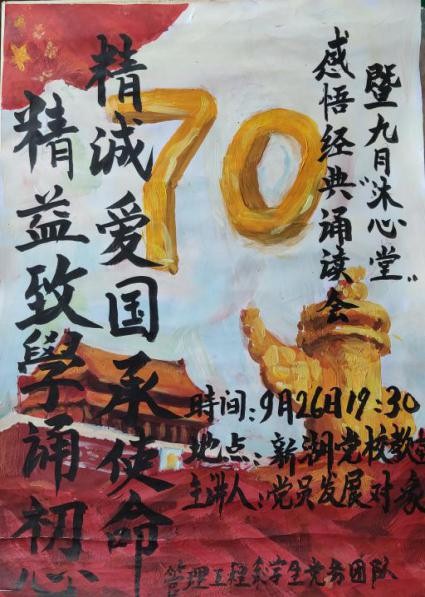 精诚爱国承使命
精益致學诵初心
暨九月“沐心堂”
感悟经典诵读会
70
时间:9月26日19:30
地点:新湖党校教室
主讲人:党员发展对象
管理工程系学生党务团队